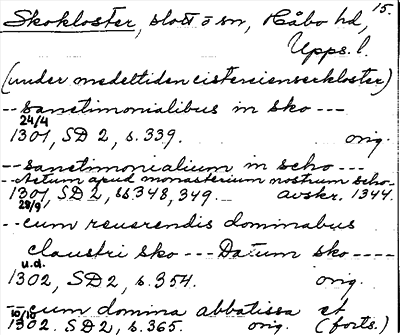 15.
Skokloster, slott o sn, Håbo hd,
Upps. l.
(under medeltiden cistercienserkloster)
-- sanctimonialibus in sko ---
24/4
1301, SD 2, s. 339. orig.
-- sanctimonialium in scho ---
-- Actum apud monasterium nostrum scho-
1301, SD 2, ss. 348, 349. avskr. 1344.
29/9
-- cum reuerendis dominabus
claustri sko --- Datum sko ----
u.d.
1302, SD 2, s. 354. orig.
-- cum domina abbatissa et
10/10
1302. SD 2, s. 365. orig. (forts.)